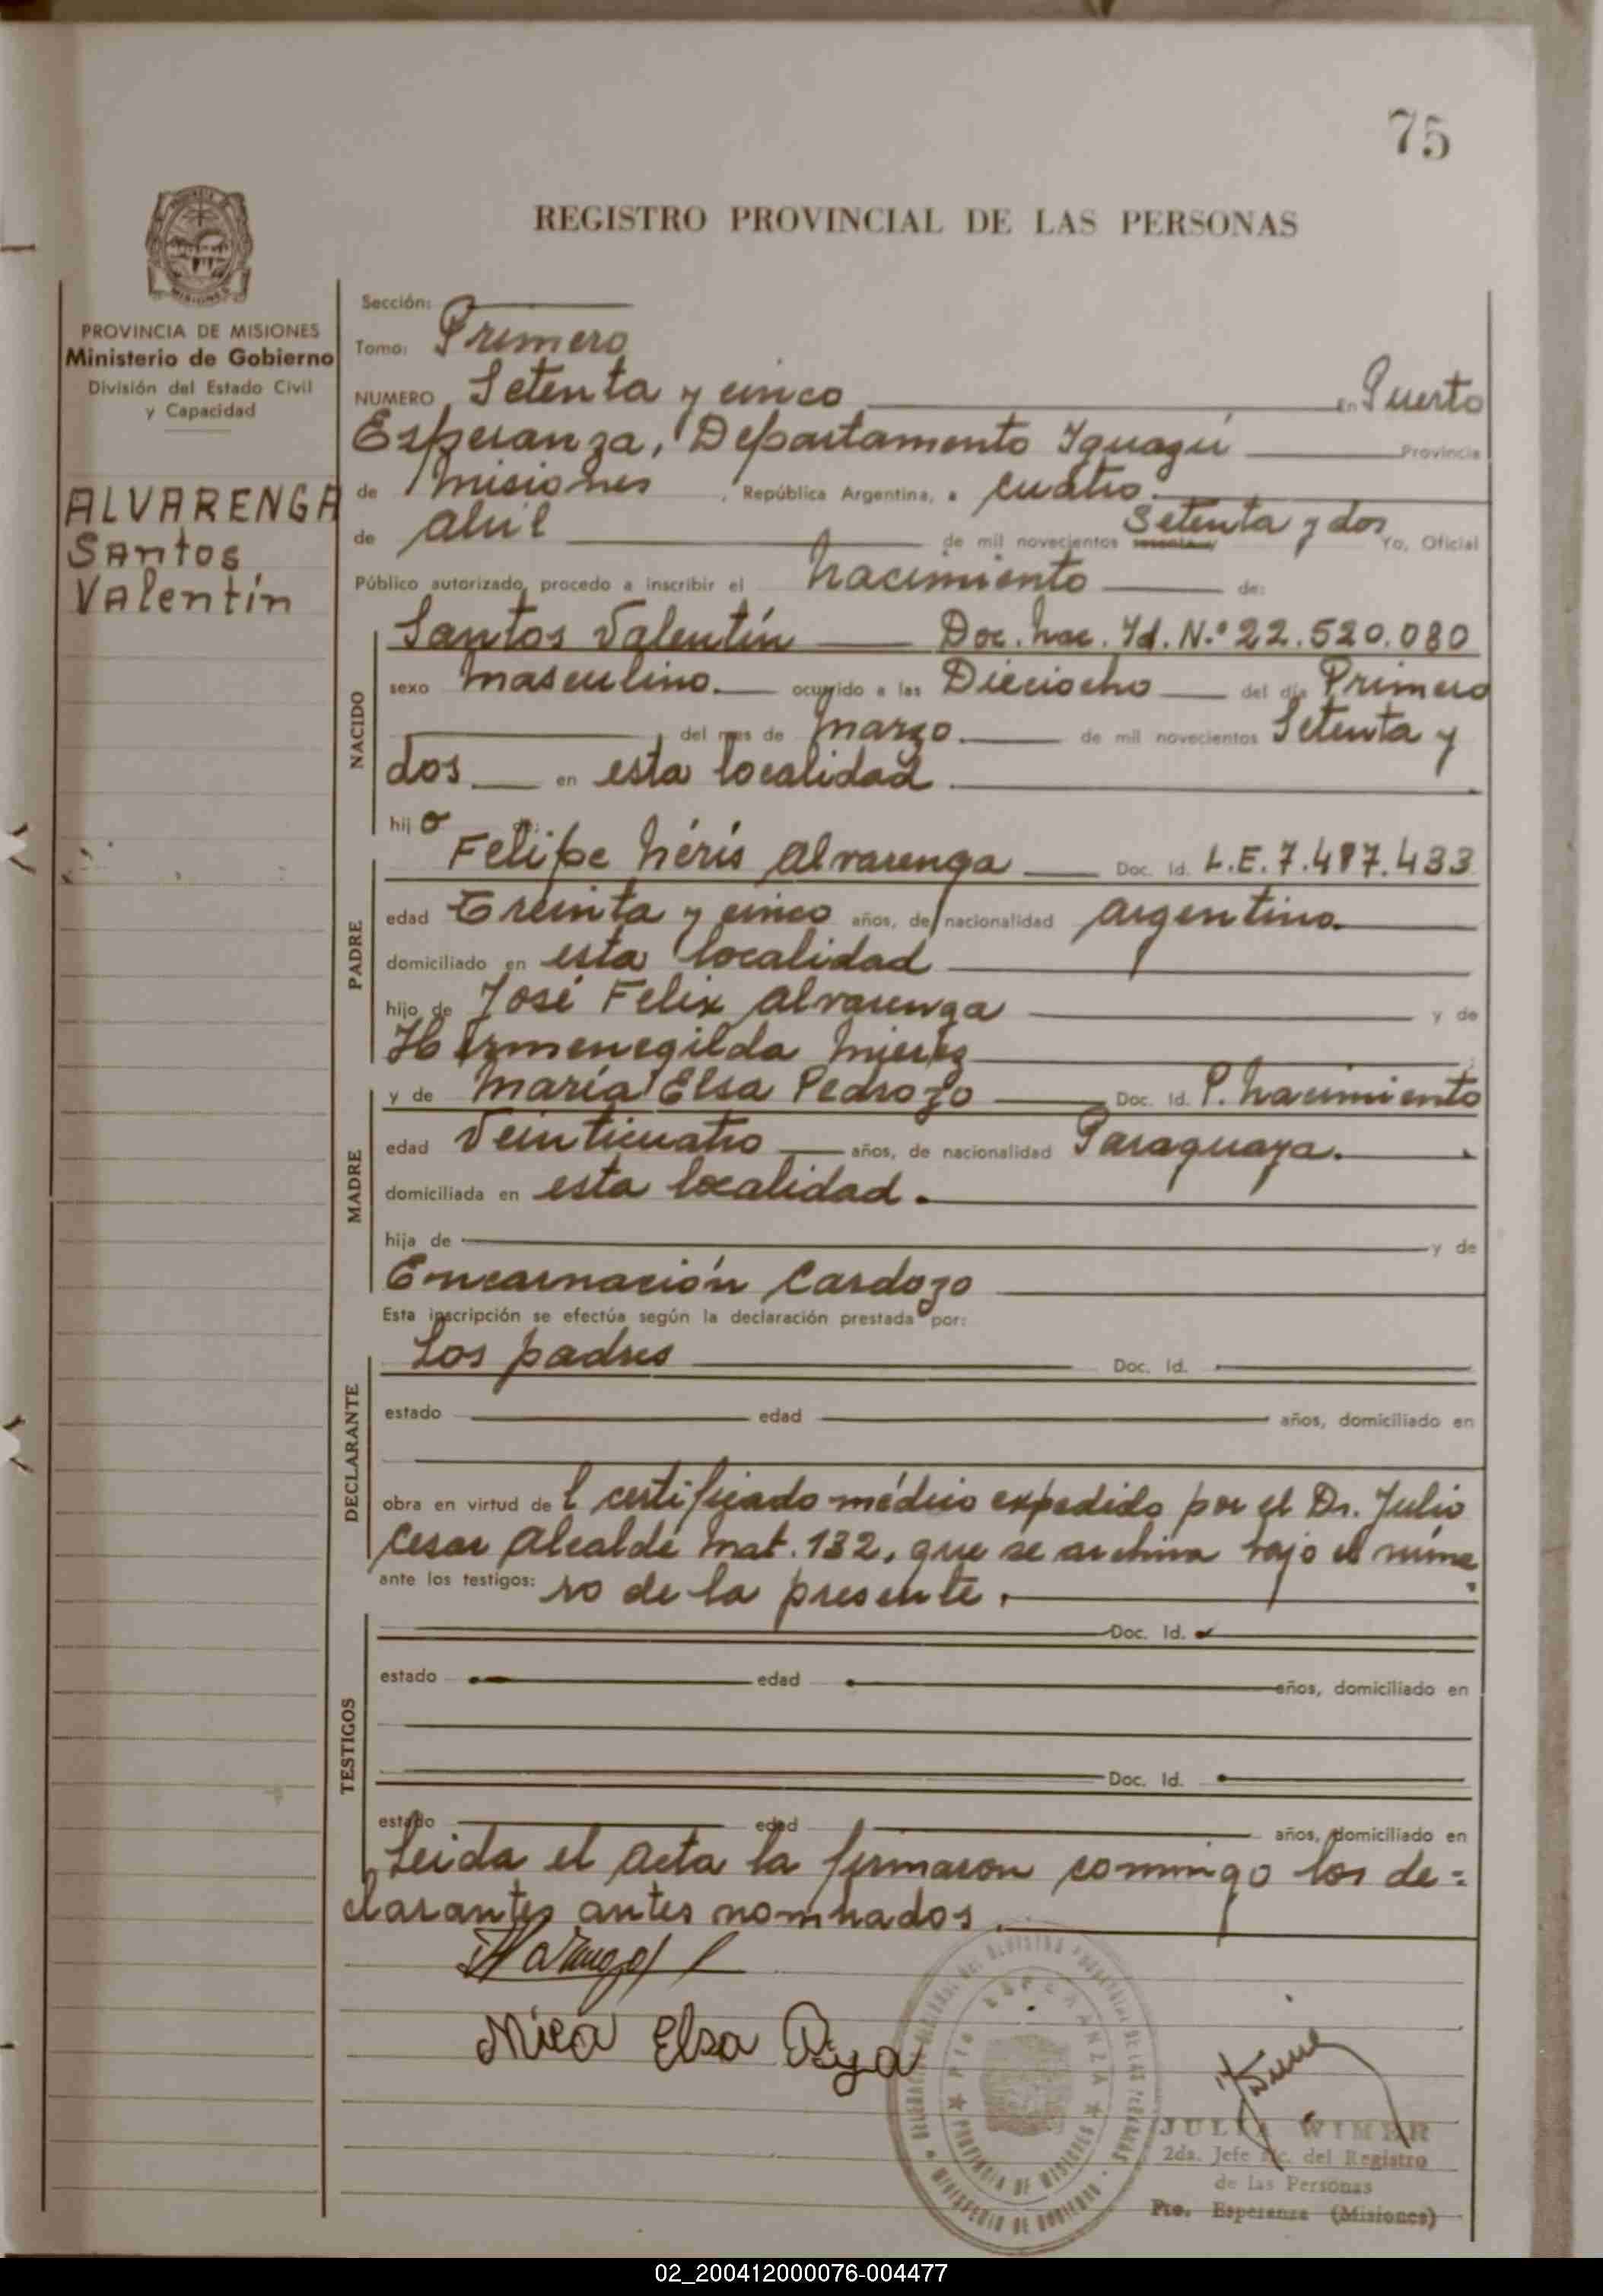 75
REGISTRO PROVINCIAL DE LAS PERSONAS
PROVINCIA DE MISIONES
Ministerio de Gobierno
División del Estado Civil
y Capacidad
ALVARENGA
Santos
Valentín
Sección:
Tomo: Primero
NUMERO Setenta y cinco En Puerto
Esperanza, Departamento Iguazú Provincia
de Misiones, República Argentina, a cuatro
de abril de mil novecientos sesenta y Setenta y dos Yo, Oficial
Público autorizado, procedo a inscribir el nacimiento de:
NACIDO
Santos Valentín Doc. Nac. Id. N.º 22.520.080
sexo masculino. ocurrido a las Dieciocho del día Primero
del mes de marzo. de mil novecientos Setenta y
dos en esta localidad
hijo de:
PADRE
Felipe Néris Alvarenga Doc. Id. L.E. 7.487.433
edad Treinta y cinco años, de nacionalidad argentino.
domiciliado en esta localidad
hijo de José Felix Alvarenga y de
Hermenegilda Mierez
MADRE
y de María Elsa Pedrozo Doc. Id. P. Nacimiento
edad Veinticuatro años, de nacionalidad Paraguaya.
domiciliada en esta localidad.
hija de y de
Encarnación Cardozo
Esta inscripción se efectúa según la declaración prestada por:
DECLARANTE
Los padres Doc. Id.
estado edad años, domiciliado en
obra en virtud del certificado médico expedido por el Dr. Julio
Cesar Alcalde Mat. 132, que se archiva bajo el núme
ante los testigos: ro de la presente.
TESTIGOS
Doc. Id.
estado edad años, domiciliado en
Doc. Id.
estado edad años, domiciliado en
Leida el acta la firmaron conmigo los de=
clarantes antes nombrados.
Elsa
PROVINCIA DE MISIONES
MINISTERIO DE GOBIERNO
JULIA WIMER
2da. Jefe Ac. del Registro
de las Personas
Pto. Esperanza (Misiones)
02_200412000076-004477